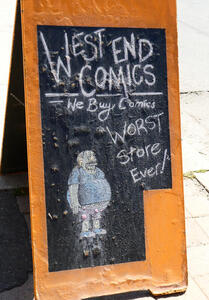 WEST END
COMICS
We Buy Comics
WORST
Store
Ever!